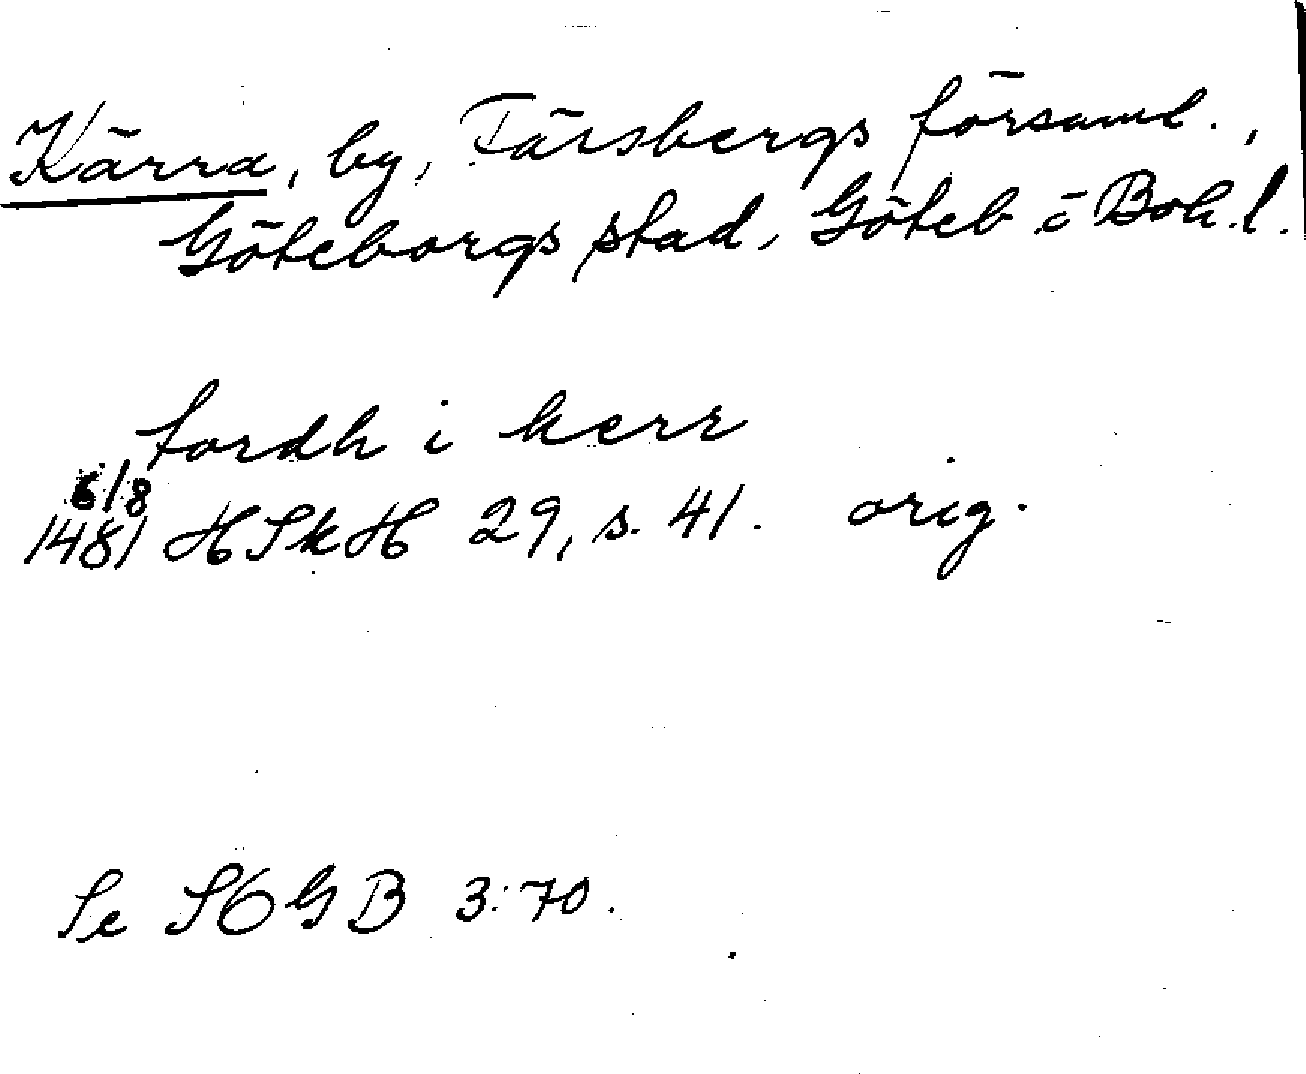 Kärra, by, Tärsbergs församl.,
Göteborgs stad, Göteb ō Boh.l.
tordh i kerr
6/8
1481 HSkH 29, s. 41. orig.
Se SOGB 3:70.